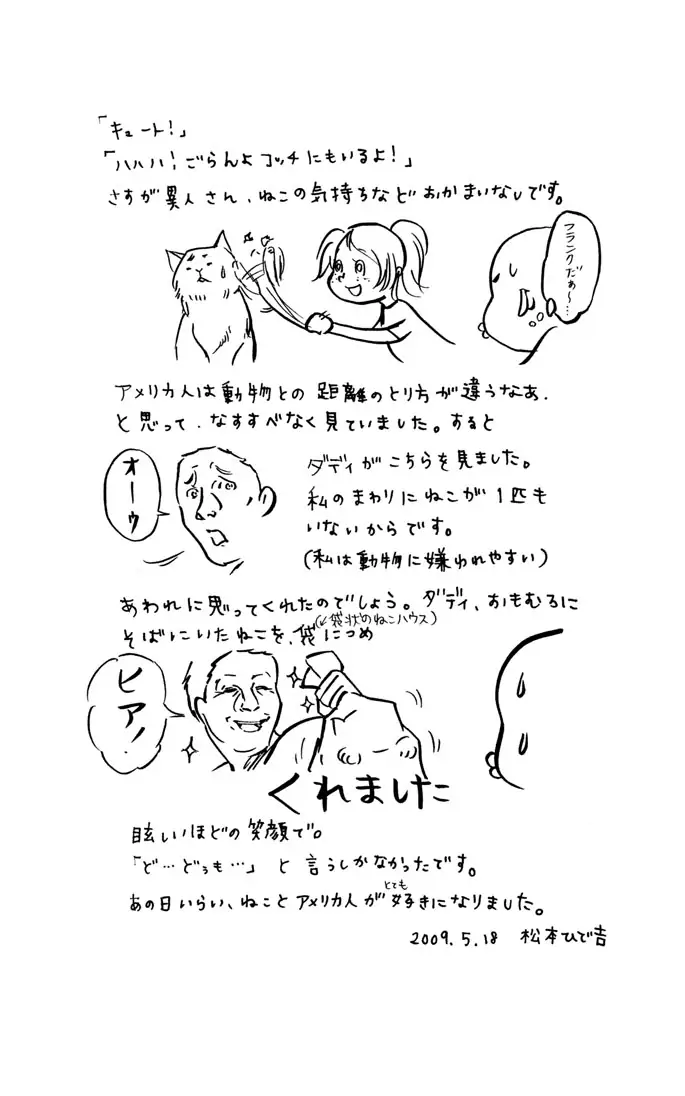 「キュート！」
「ハハハ！ごらんよコッチにもいるよ！」
さすが異人さん、ねこの気持ちなどおかまいなしです。
フランクだぁ〜…
アメリカ人は動物との距離のとり方が違うなあ、
と思って、なすすべなく見ていました。すると
オーゥ
ダディがこちらを見ました。
私のまわりにねこが1匹も
いないからです。
(私は動物に嫌われやすい)
あわれに思ってくれたのでしょう。ダディ、おもむろに
(↙袋状のねこハウス)
そばにいたねこを、袋につめ
ヒア!
くれました
眩しいほどの笑顔で。
「ど…どぅも…」と言うしかなかったです。
とても
あの日いらい、ねことアメリカ人が好きになりました。
2009.5.18 松本ひで吉